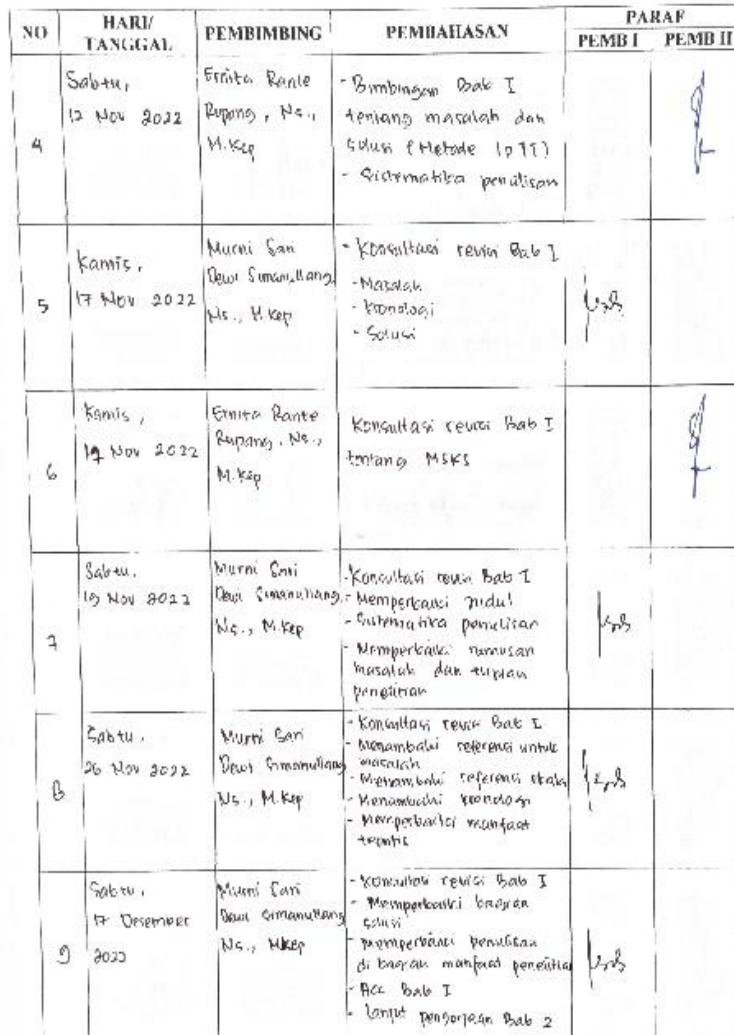 NO HARI/ TANGGAL PEMBIMBING PEMBAHASAN PARAF
PEMB I PEMB II
4
Sabtu,
12 Nov 2022
Ernita Rante
Rupang, Ns.,
M.Kep
- Bimbingan Bab I
tentang masalah dan
solusi (Metode
- Sistematika penulisan
5
Kamis,
17 Nov 2022
Murni Sari
Dewi Simanullang,
Ns., M.Kep
- Konsultasi revisi Bab I
- Masalah
- Kronologi
- Solusi
6
Kamis,
Nov 2022
Ernita Rante
Rupang, Ns.,
M.Kep
Konsultasi revisi Bab I
tentang MSKS
7
Sabtu,
19 Nov 2022
Murni Sari
Dewi Simanullang,
Ns., M.Kep
- Konsultasi revisi Bab I
- Memperbaiki judul
- Sistematika penulisan
- Memperbaiki rumusan
masalah dan tujuan
penelitian
8
Sabtu,
26 Nov 2022
Murni Sari
Dewi Simanullang
Ns., M.Kep
- Konsultasi revisi Bab I
- Menambahi referensi untuk
masalah
- Menambahi referensi skala
- Menambahi kronologi
- Memperbaiki manfaat
teoritis
9
Sabtu,
17 Desember
2022
Murni Sari
Dewi Simanullang
Ns., MKep
- Konsultasi revisi Bab I
- Memperbaiki bagian
solusi
- Memperbaiki penulisan
di bagian manfaat penelitian
- Acc Bab I
- Lanjut pengerjaan Bab 2